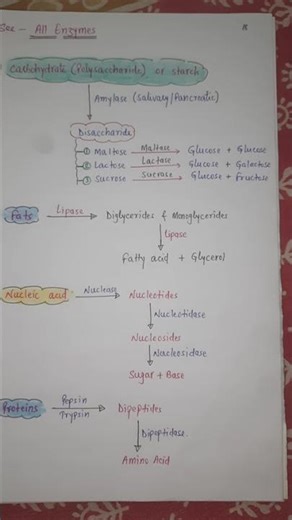 All Enzymes
Carbohydrate (Polysaccharide) or starch
Amylase (Salivary/Pancreatic)
Disaccharide
① Maltose Maltase Glucose + Glucose
② Lactose Lactase Glucose + Galactose
③ Sucrose Sucrase Glucose + Fructose
Fats Lipase Diglycerides & Monoglycerides
Lipase
Fatty acid + Glycerol
Nucleic acid Nuclease Nucleotides
Nucleotidase
Nucleosides
Nucleosidase
Sugar + Base
Proteins Pepsin Dipeptides
Trypsin
Dipeptidase
Amino Acid